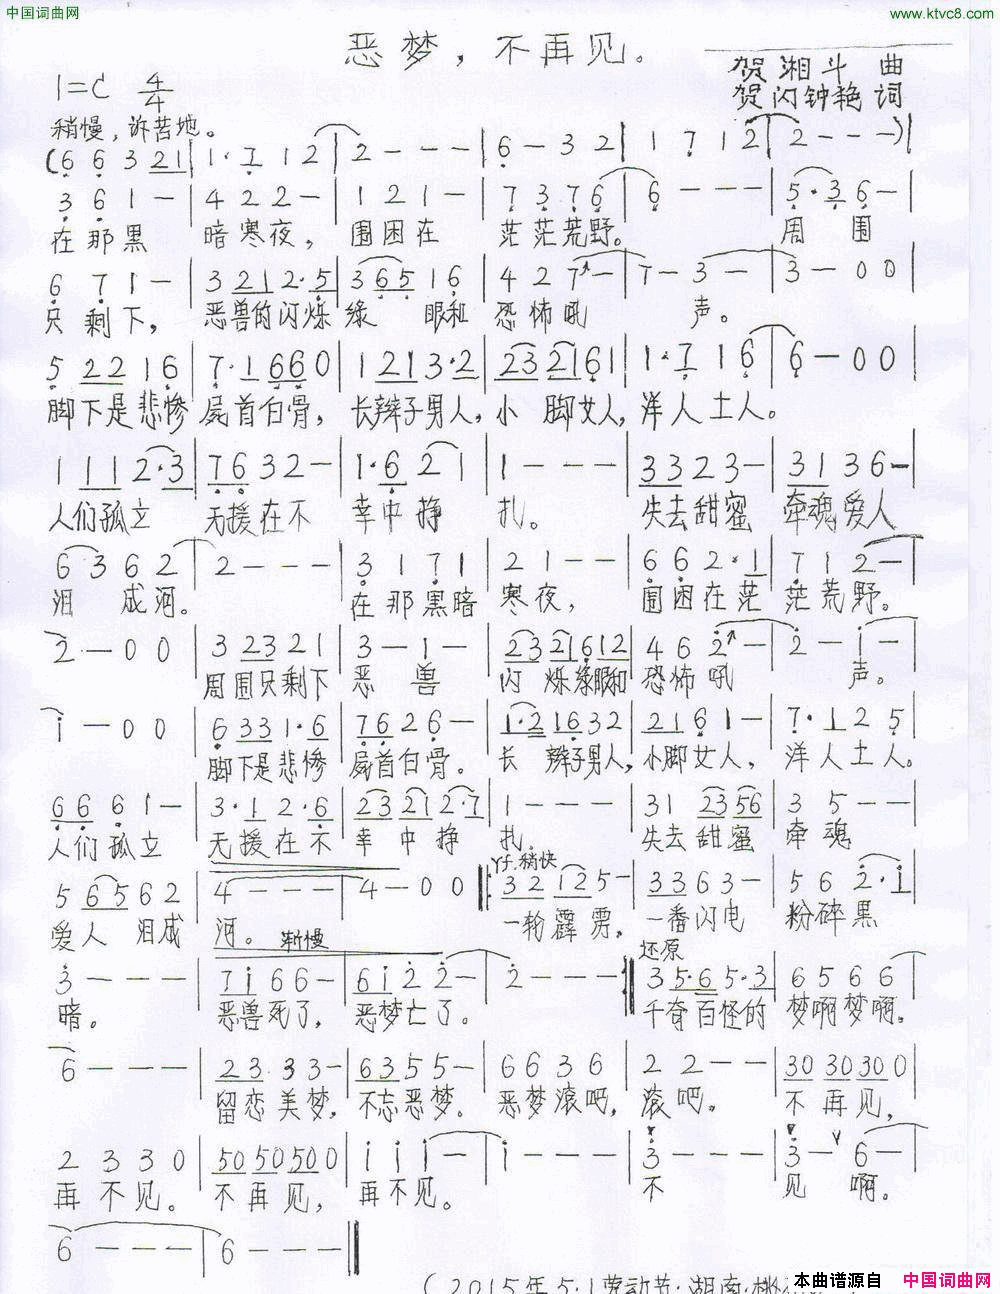 中国词曲网
www.ktvc8.com
恶梦，不再见。
贺湘斗 曲
贺闪钟艳 词
1=C 4/4
稍慢，诉苦地。
(6 6 3 2 1 | 1· 7 1 2 | 2 - - - | 6 - 3 2 | 1 7 1 2 | 2 - - -) |
3 6 1 - | 4 2 2 - | 1 2 1 - | 7 3 7 6 | 6 - - - | 5· 3 6 - |
在那黑 暗寒夜， 围困在 茫茫荒野。 周 围
6 7 1 - | 3 2 1 2· 5 | 3 6 5 1 6 | 4 2 7 - | 7 - 3 - | 3 - 0 0 |
只剩下， 恶兽的闪烁 绿 眼和 恐怖吼 声。
5 2 2 1 6 | 7· 1 6 6 0 | 1 2 1 3· 2 | 2 3 2 1 6 1 | 1· 7 1 6 | 6 - 0 0 |
脚下是悲惨 屍首白骨， 长辫子男人， 小 脚女人， 洋人土人。
1 1 1 2· 3 | 7 6 3 2 - | 1· 6 2 1 | 1 - - - | 3 3 2 3 - | 3 1 3 6 - |
人们孤立 无援在不 幸中挣 扎。 失去甜蜜 牵魂爱人
6· 3 6 2 | 2 - - - | 3 1 7 1 | 2 1 - - | 6 6 2· 1 | 7 1 2 - |
泪 成河。 在那黑暗 寒夜， 围困在茫 茫荒野。
2 - 0 0 | 3 2 3 2 1 | 3 - 1 - | 2 3 2 1 6 1 2 | 4 6 2 - | 2 - 1 - |
周围只剩下 恶 兽 闪 烁绿眼和 恐怖吼 声。
1 - 0 0 | 6 3 3 1· 6 | 7 6 2 6 - | 1· 2 1 6 3 2 | 2 1 6 1 - | 7· 1 2 5 |
脚下是悲惨 屍首白骨。 长 辫子男人， 小脚女人， 洋人土人。
6 6 6 1 - | 3· 1 2· 6 | 2 3 2 1 2· 7 | 1 - - - | 3 1 2 3 5 6 | 3 5 - - |
人们孤立 无援在不 幸 中 挣 扎。 失去 甜蜜 牵 魂
稍快
5 6 5 6 2 | 4 - - - | 4 - 0 0 |: 3 2 1 2 5 - | 3 3 6 3 - | 5 6 2· 1 |
爱人 泪成 河。 渐慢 一轮霹雳， 一番闪电 粉碎黑
还原
3 - - - | 7 1 6 6 - | 6 1 2 2 - | 2 - - - :| 3 5· 6 5· 3 | 6 5 6 6 |
暗。 恶兽死了， 恶梦亡了。 千奇百怪的 梦啊梦啊。
6 - - - | 2 3· 3 3 - | 6 3 5 5 - | 6 6 3 6 | 2 2 - - | 3 0 3 0 3 0 0 |
留恋美梦， 不忘恶梦。 恶梦滚吧， 滚吧。 不再见，
2 3 3 0 | 5 0 5 0 5 0 0 | 1 1 1 - | 1 - - - | 3 - - - | 3 - 6 - |
再不见。 不再见， 再不见。 不 见 啊。
6 - - - | 6 - - - ‖
(2015年5·1劳动节·湖南·桃
本曲谱源自 中国词曲网